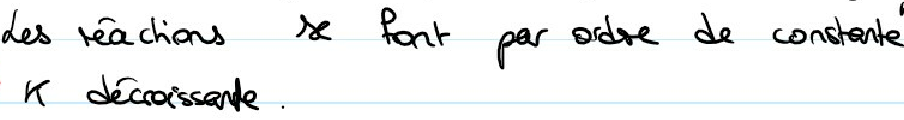 Les réactions se font par ordre de constante
K décroissante.